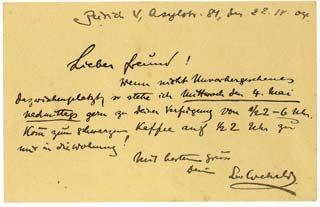 Zürich V, Asylstr. 81, den 22. IV. 04.
Lieber Freund!
Wenn nicht Unvorhergesehenes
dazwischenplatzt, so stehe ich Mittwoch den 4. Mai
nachmittags gern zu deiner Verfügung von ½2–6 Uhr.
Kom zum schwarzen Kaffee auf ½2 Uhr zu
mir in die Wohnung!
Mit bestem Gruss
Dein